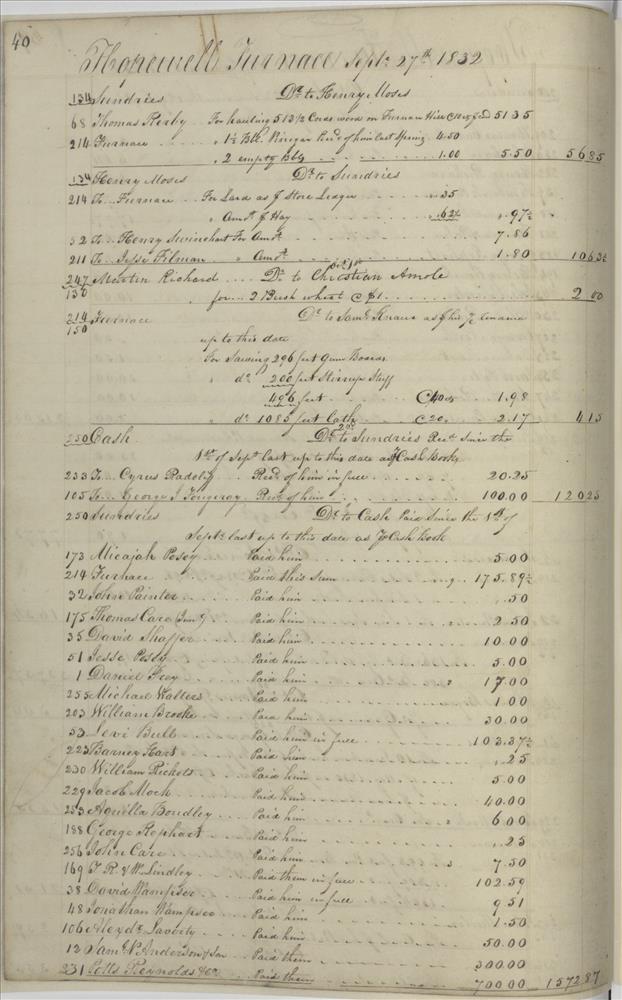 40
Hopewell Furnace Septr 27th 1832
134 Sundries Dr to Henry Moses
68 Thomas Kerby For hauling 513½ Cords wood on Furnace Hill C10 cts Cord 51 35
214 Furnace " 1½ Bbl. Vinegar Recd of him last Spring 4.50
" 2 empty Bbls 1.00 5.50 56 85
134 Henry Moses Dr to Sundries
214 To Furnace For Lard as J Store Ledger .35
" Amt J Hay .62½ .97½
32 To Henry Swinehart For Amt 7.86
211 To Jesse Filman " Amt 1.80 10 63½
247 Martin Richard Dr to Christian Amole
130 for 2 Bush wheat C $1 2 00
214 Furnace Dr to Saml Knauer
150
up to this date
For Sawing 296 feet Gum Boards
" do 200 feet Stirrup Stuff
496 feet C40 cts 1.98
" do 1085 feet Lath C20 cts 2.17 4 15
250 Cash Dr to Sundries Recd Since the
1st of Septr last up to this date as J Cash Book
233 To Cyrus Recd of him in full 20.25
105 To George J Recd of him 100.00 120 25
250 Sundries Dr to Cash Paid Since the 1st of
Septr last up to this date as J Cash Book
173 Micajah Posey Paid him 5.00
214 Furnace Paid this Sum 175.89½
32 John Painter Paid him .50
175 Thomas Care Junr Paid him 2.50
35 David Shaffer Paid him 10.00
51 Jesse Posey Paid him 5.00
1 Daniel Fray Paid him 17.00
255 Michael Walters Paid him 1.00
203 William Brooke Paid him 30.00
53 Levi Bull Paid him in full 103.37½
223 Barney Hart Paid him .25
230 William Rickets Paid him 5.00
229 Jacob Mock Paid him 40.00
253 Aquilla Bondley Paid him 6.00
188 George Rephart Paid him .25
256 John Care Paid him 7.50
169 J. R. & W. Lindley Paid them in full 102.59
38 David Wampser Paid him in full 9 51
48 Jonathan Wampser Paid him 1.50
106 Alexdr Laverty Paid him 50.00
12 Saml P Anderson & Son Paid them 300.00
231 Potts Reynolds & Co Paid them 700 00 1572 87